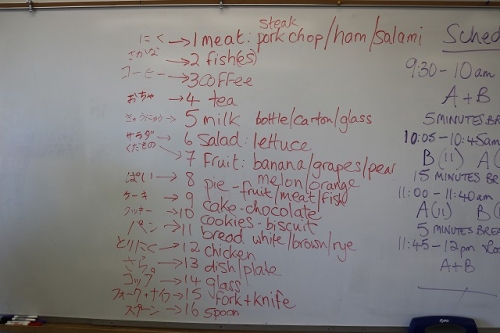 steak
にく → 1 meat: pork chop/ham/salami
さかな → 2 fish(es)
コーヒー → 3 coffee
おちゃ → 4 tea
ぎゅうにゅう → 5 milk bottle/carton/glass
サラダ → 6 Salad: lettuce
くだもの → 7 Fruit: banana/grapes/pear
melon/orange
ぱい → 8 pie - fruit/meat/fish
ケーキ → 9 cake - chocolate
クッキー → 10 cookies - biscuit
パン → 11 bread white/brown/rye
とりにく → 12 chicken
さら → 13 dish/plate
コップ → 14 glass
フォーク+ナイフ → 15 fork + knife
スプーン → 16 spoon
Sched
9:30 - 10am
A + B
5 MINUTES BR
10:05 - 10:45am
B (11) A(
15 MINUTES BRE
11:00 - 11:40am
A(11) B(1
5 MINUTES BREA
11:45 - 12pm
A+B